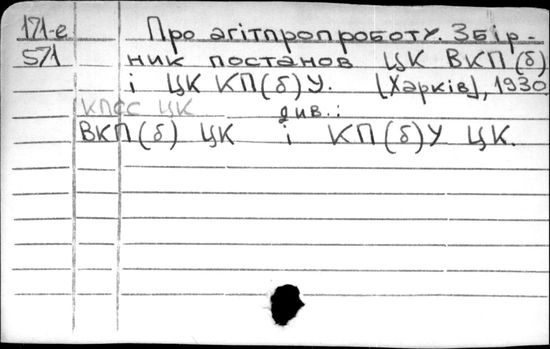 171-е Про агітпропроботу. Збір-
571 ник постанов ЦК ВКП(б)
і ЦК КП(б)У. [Харків], 1930
КПСС ЦК див.:
ВКП(б) ЦК і КП(б)У ЦК.